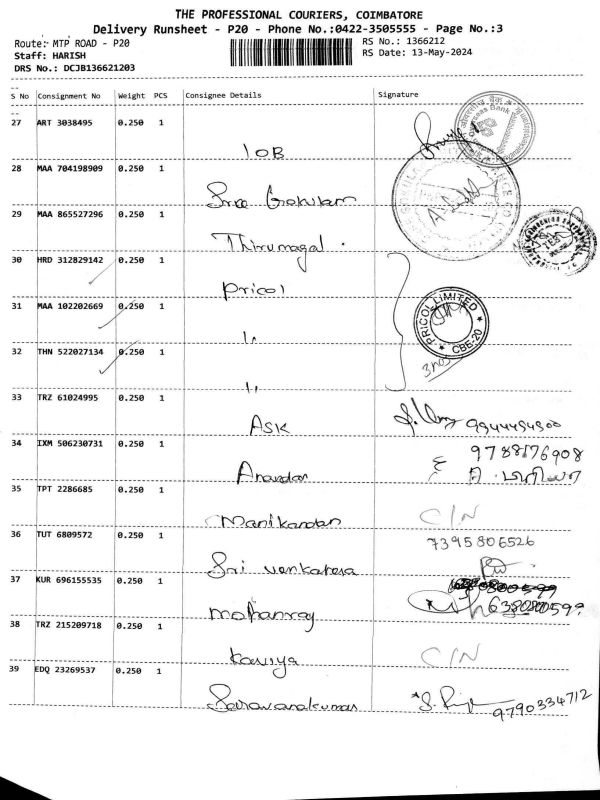 THE PROFESSIONAL COURIERS, COIMBATORE
Delivery Runsheet - P20 - Phone No.:0422-3505555 - Page No.:3
Route: MTP ROAD - P20
Staff: HARISH
DRS No.: DCJB136621203
RS No.: 1366212
RS Date: 13-May-2024
S No Consignment No Weight PCS Consignee Details Signature
27 ART 3038495 0.250 1
IOB
28 MAA 704198909 0.250 1
Sree Gokulam
29 MAA 865527296 0.250 1
Thirumagal.
30 HRD 312829142 0.250 1
Pricol
31 MAA 102202669 0.250 1
PRICOL LIMITED
CBE-20
32 THN 522027134 0.250 1
3nos
33 TRZ 61024995 0.250 1
ASK
9944494500
34 IXM 506230731 0.250 1
9788176908
Anandan
35 TPT 2286685 0.250 1
Manikandan C/N
36 TUT 6809572 0.250 1
7395806526
Sri venkatesa
37 KUR 696155535 0.250 1
mohanraj
38 TRZ 215209718 0.250 1
Kaviya C/N
39 EDQ 23269537 0.250 1
Saravanakumar
9790334712